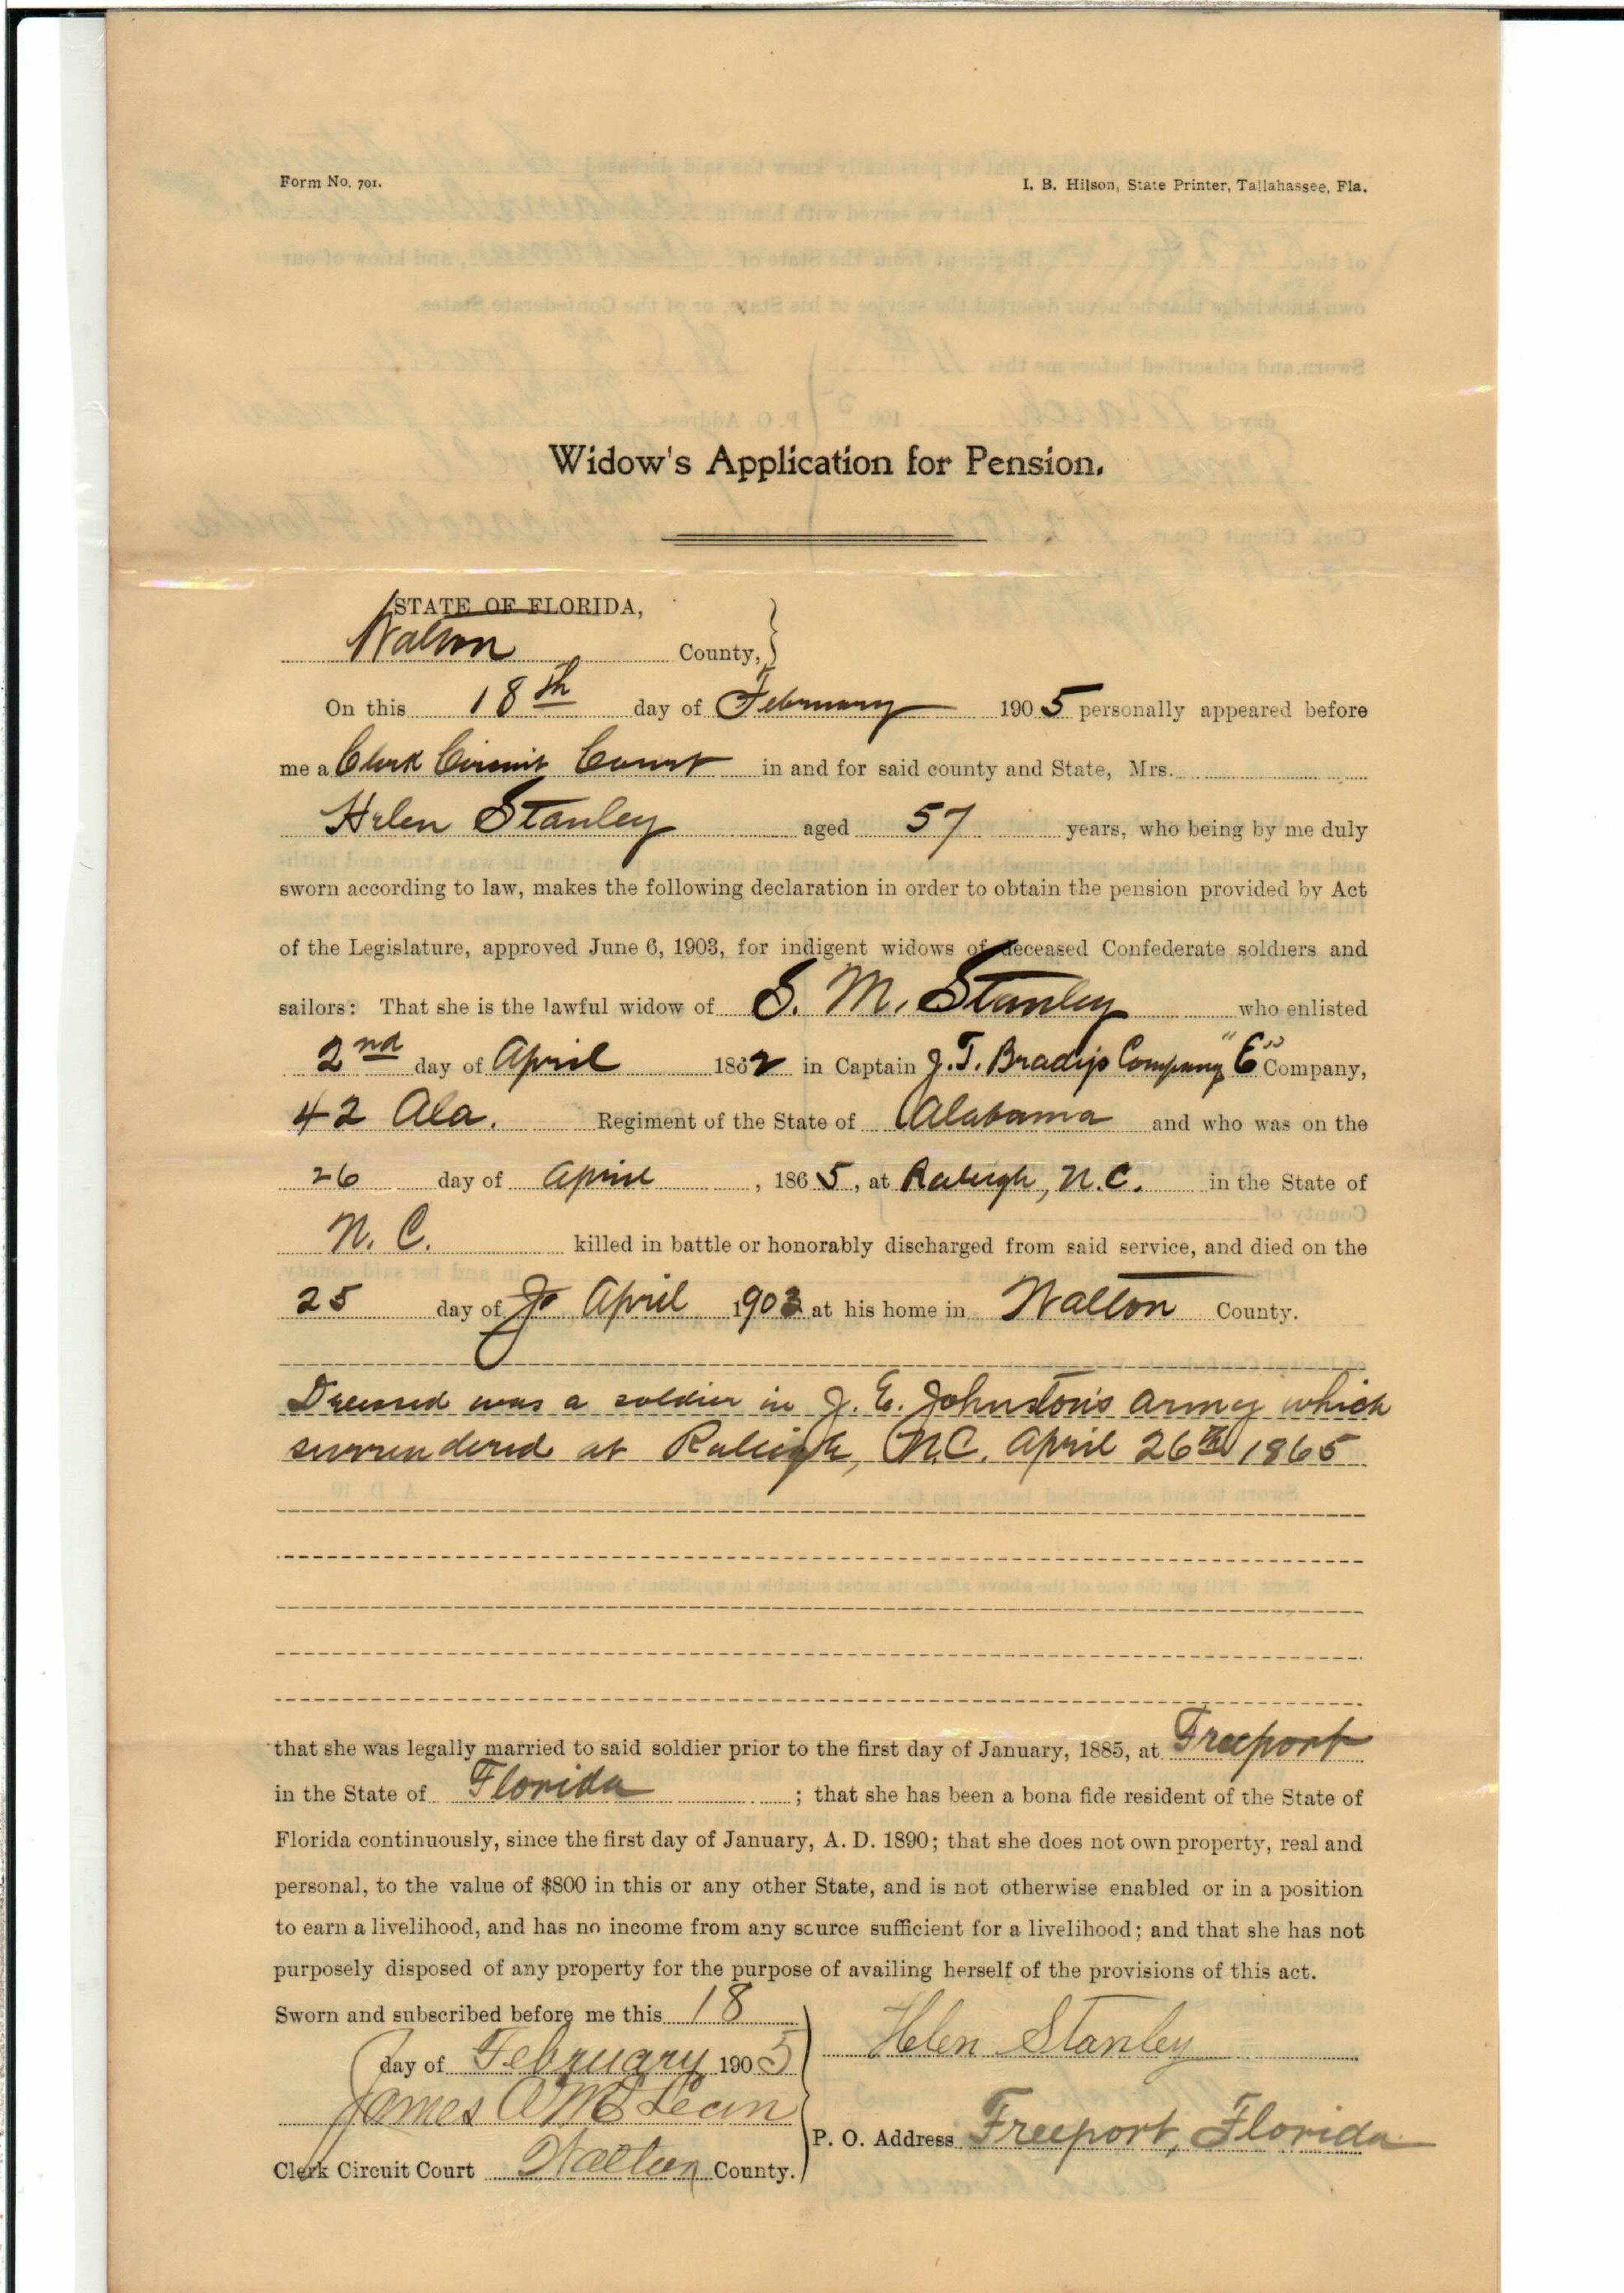 Form No. 701.
I. B. Hilson, State Printer, Tallahassee, Fla.
Widow's Application for Pension.
STATE OF FLORIDA,
Walton County,
On this 18th day of February 1905 personally appeared before
me a Clerk Circuit Court in and for said county and State, Mrs.
Helen Stanley aged 57 years, who being by me duly
sworn according to law, makes the following declaration in order to obtain the pension provided by Act
of the Legislature, approved June 6, 1903, for indigent widows of deceased Confederate soldiers and
sailors: That she is the lawful widow of S. M. Stanley who enlisted
2nd day of April 1862 in Captain J. T. Brady's Company, "C" Company,
42 Ala. Regiment of the State of Alabama and who was on the
26 day of April, 1865, at Raleigh, N.C. in the State of
N. C. killed in battle or honorably discharged from said service, and died on the
25 day of April 1903 at his home in Walton County.
Deceased was a soldier in J. E. Johnston's army which
surrendered at Raleigh, N.C. April 26th 1865
that she was legally married to said soldier prior to the first day of January, 1885, at Freeport
in the State of Florida; that she has been a bona fide resident of the State of
Florida continuously, since the first day of January, A. D. 1890; that she does not own property, real and
personal, to the value of $800 in this or any other State, and is not otherwise enabled or in a position
to earn a livelihood, and has no income from any source sufficient for a livelihood; and that she has not
purposely disposed of any property for the purpose of availing herself of the provisions of this act.
Sworn and subscribed before me this 18
day of February 1905
Helen Stanley
James A McLean
P. O. Address Freeport, Florida
Clerk Circuit Court Walton County.